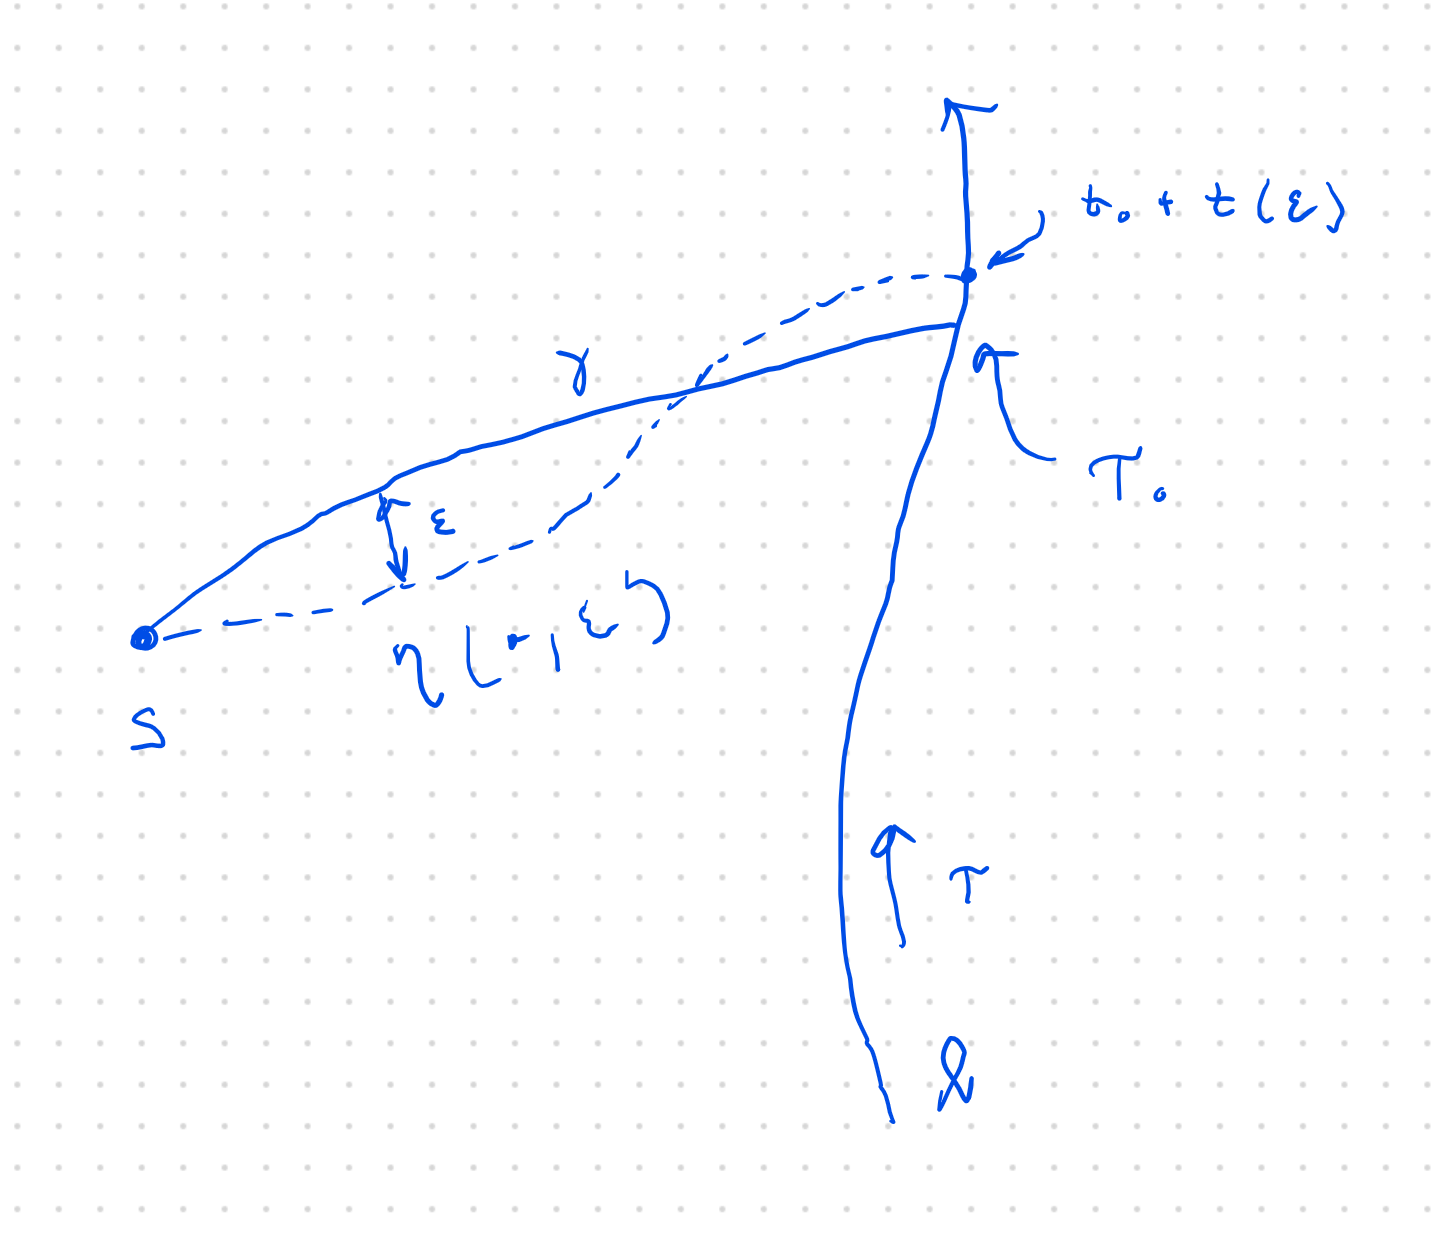 t₀ + t(ε)
γ
T₀
ε
η(·, ε)
S
T